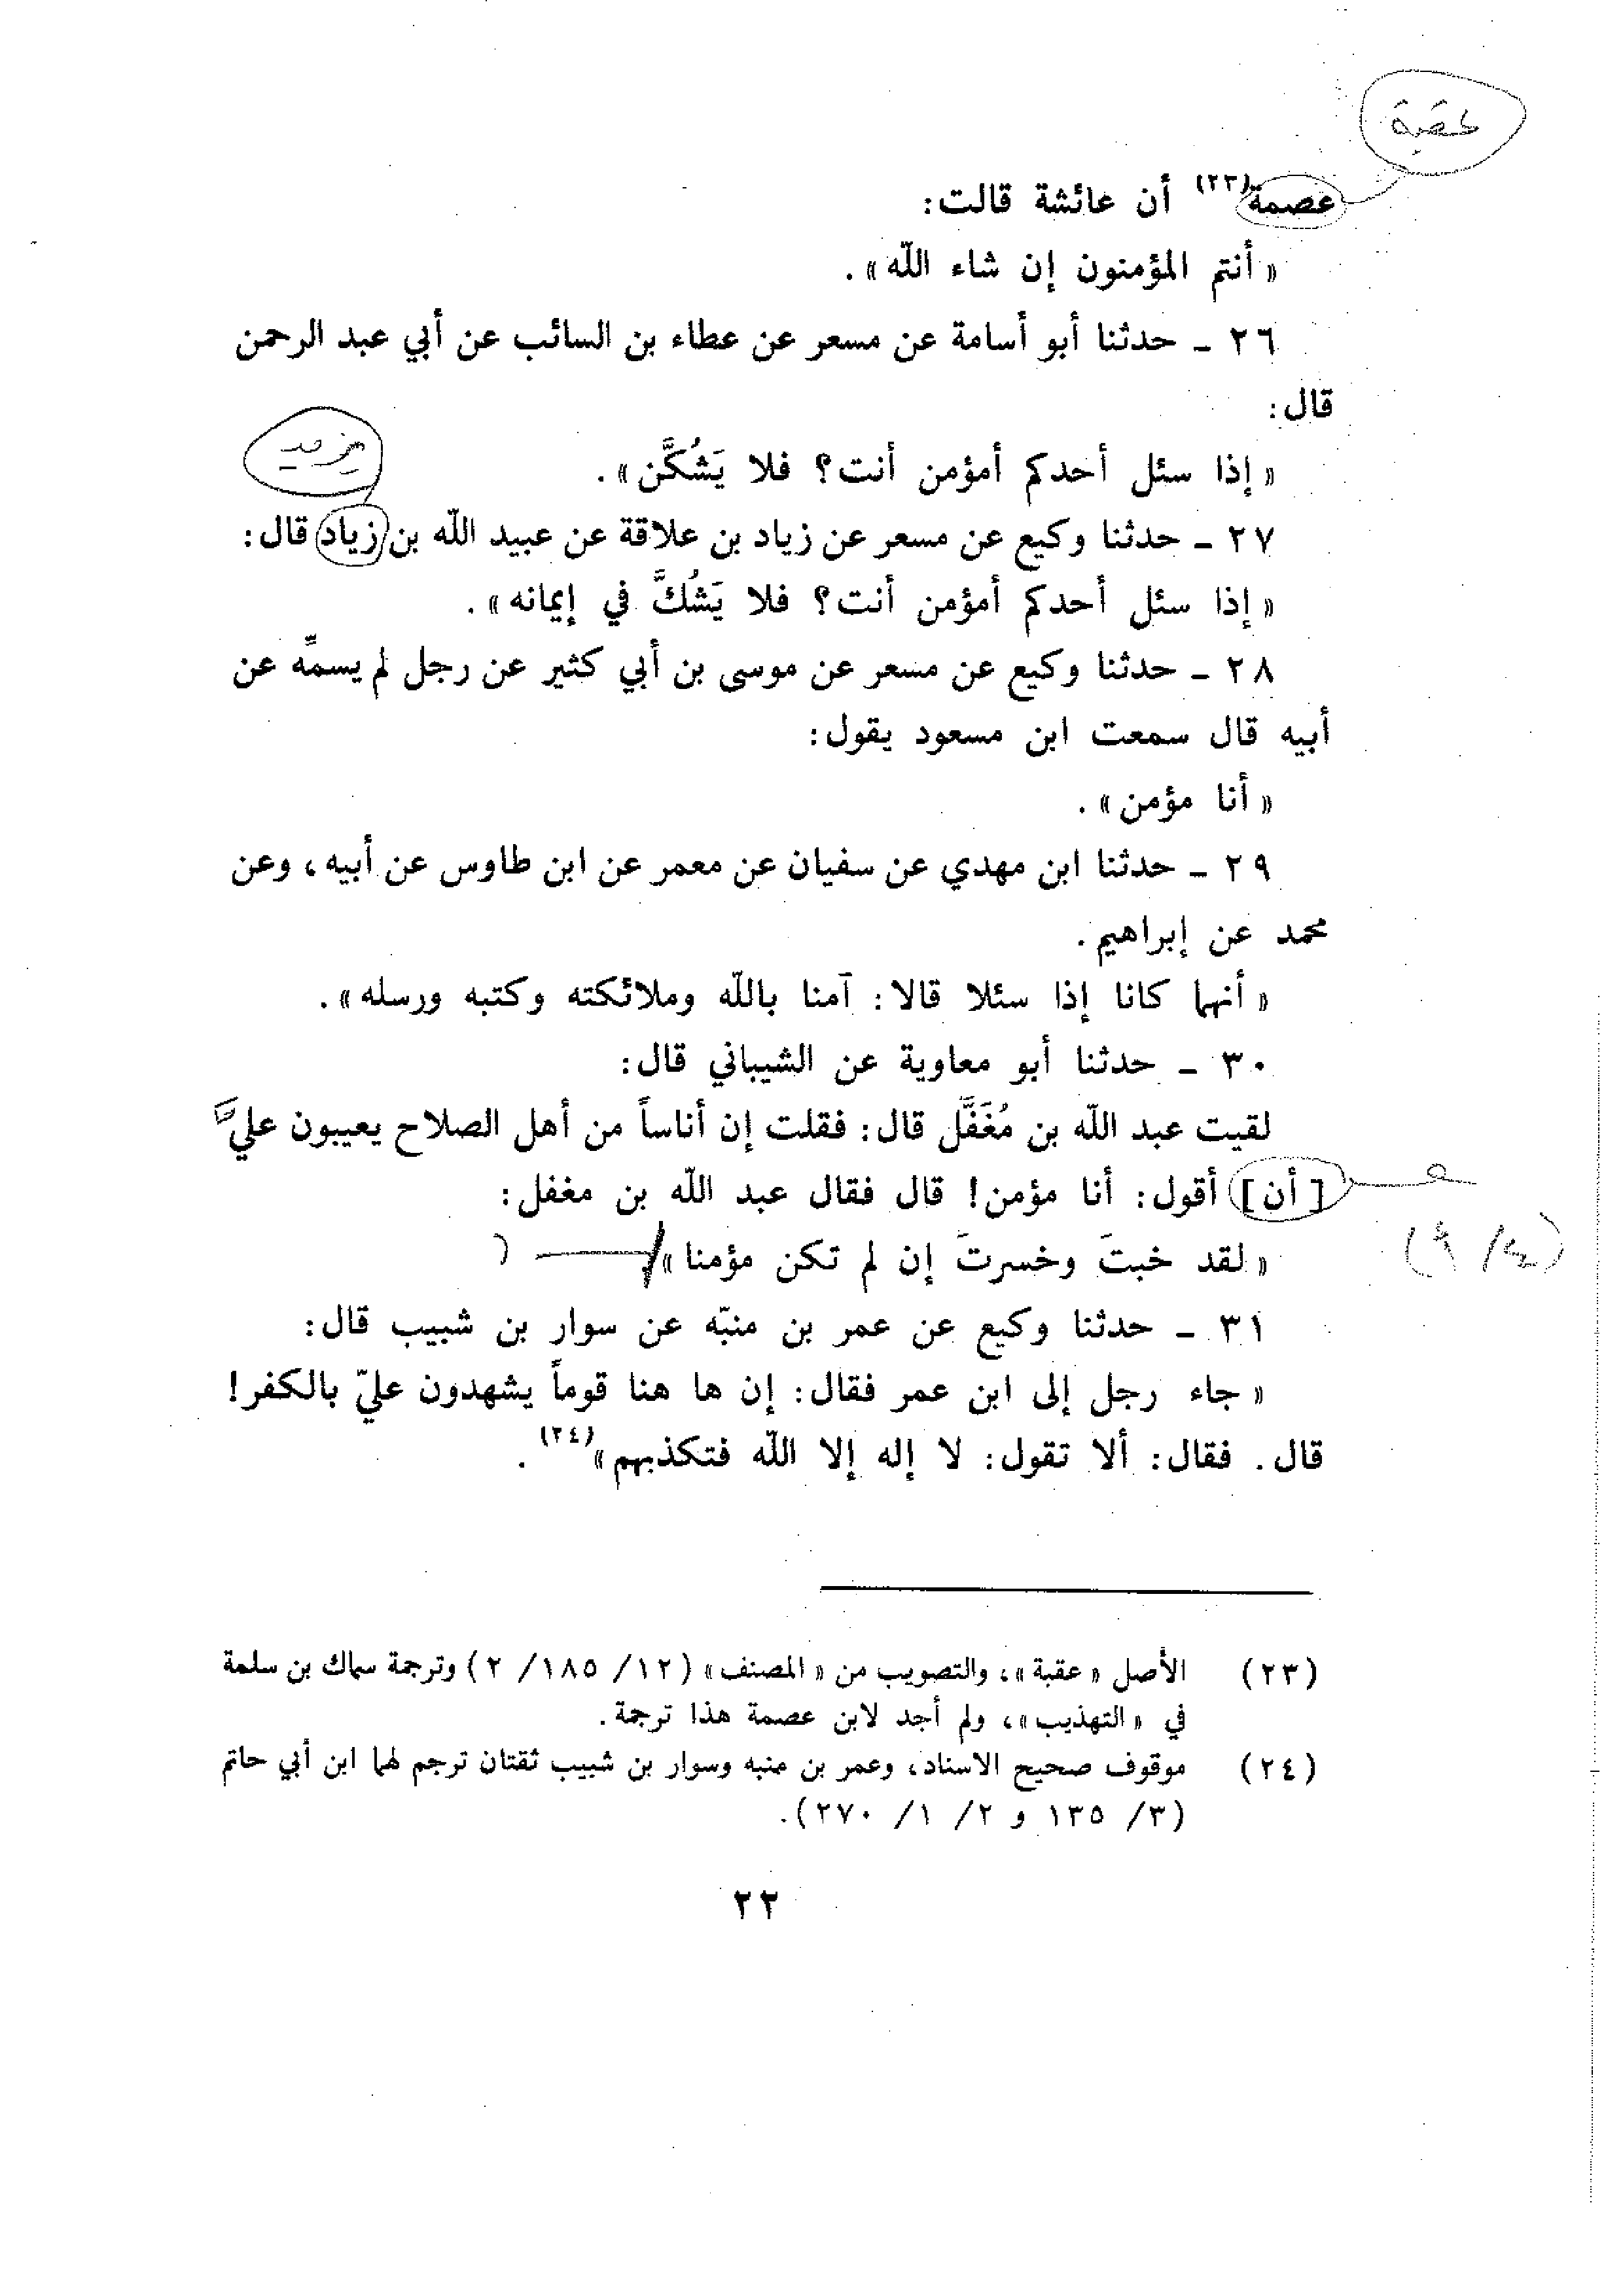 عقبة
عصمة(٢٣) أن عائشة قالت:
« أنتم المؤمنون إن شاء اللّه ».
٢٦ ـ حدثنا أبو أسامة عن مسعر عن عطاء بن السائب عن أبي عبد الرحمن
قال:
« إذا سئل أحدكم أمؤمن أنت؟ فلا يَشُكَّن ».
يزيد
٢٧ ـ حدثنا وكيع عن مسعر عن زياد بن علاقة عن عبيد اللّه بن زياد قال:
« إذا سئل أحدكم أمؤمن أنت؟ فلا يَشُكَّ في إيمانه ».
٢٨ ـ حدثنا وكيع عن مسعر عن موسى بن أبي كثير عن رجل لم يسمِّه عن
أبيه قال سمعت ابن مسعود يقول:
« أنا مؤمن ».
٢٩ ـ حدثنا ابن مهدي عن سفيان عن معمر عن ابن طاوس عن أبيه، وعن
محمد عن إبراهيم.
« أنهما كانا إذا سئلا قالا: آمنا باللّه وملائكته وكتبه ورسله ».
٣٠ ـ حدثنا أبو معاوية عن الشيباني قال:
لقيت عبد اللّه بن مُغَفَّل قال: فقلت إن أناساً من أهل الصلاح يعيبون عليَّ
[ أن ] أقول: أنا مؤمن! قال فقال عبد اللّه بن مغفل:
« لقد خبتَ وخسرتَ إن لم تكن مؤمنا ».
٣١ ـ حدثنا وكيع عن عمر بن منبّه عن سوار بن شبيب قال:
« جاء رجل إلى ابن عمر فقال: إن ها هنا قوماً يشهدون عليّ بالكفر!
قال. فقال: ألا تقول: لا إله إلا اللّه فتكذبهم »(٢٤).
(٢٣) الأصل « عقبة »، والتصويب من « المصنف » (١٢/ ١٨٥/ ٢) وترجمة سماك بن سلمة
في « التهذيب »، ولم أجد لابن عصمة هذا ترجمة.
(٢٤) موقوف صحيح الاسناد، وعمر بن منبه وسوار بن شبيب ثقتان ترجم لهما ابن أبي حاتم
(٣/ ١٣٥ و ٢/ ١/ ٢٧٠).
٢٢